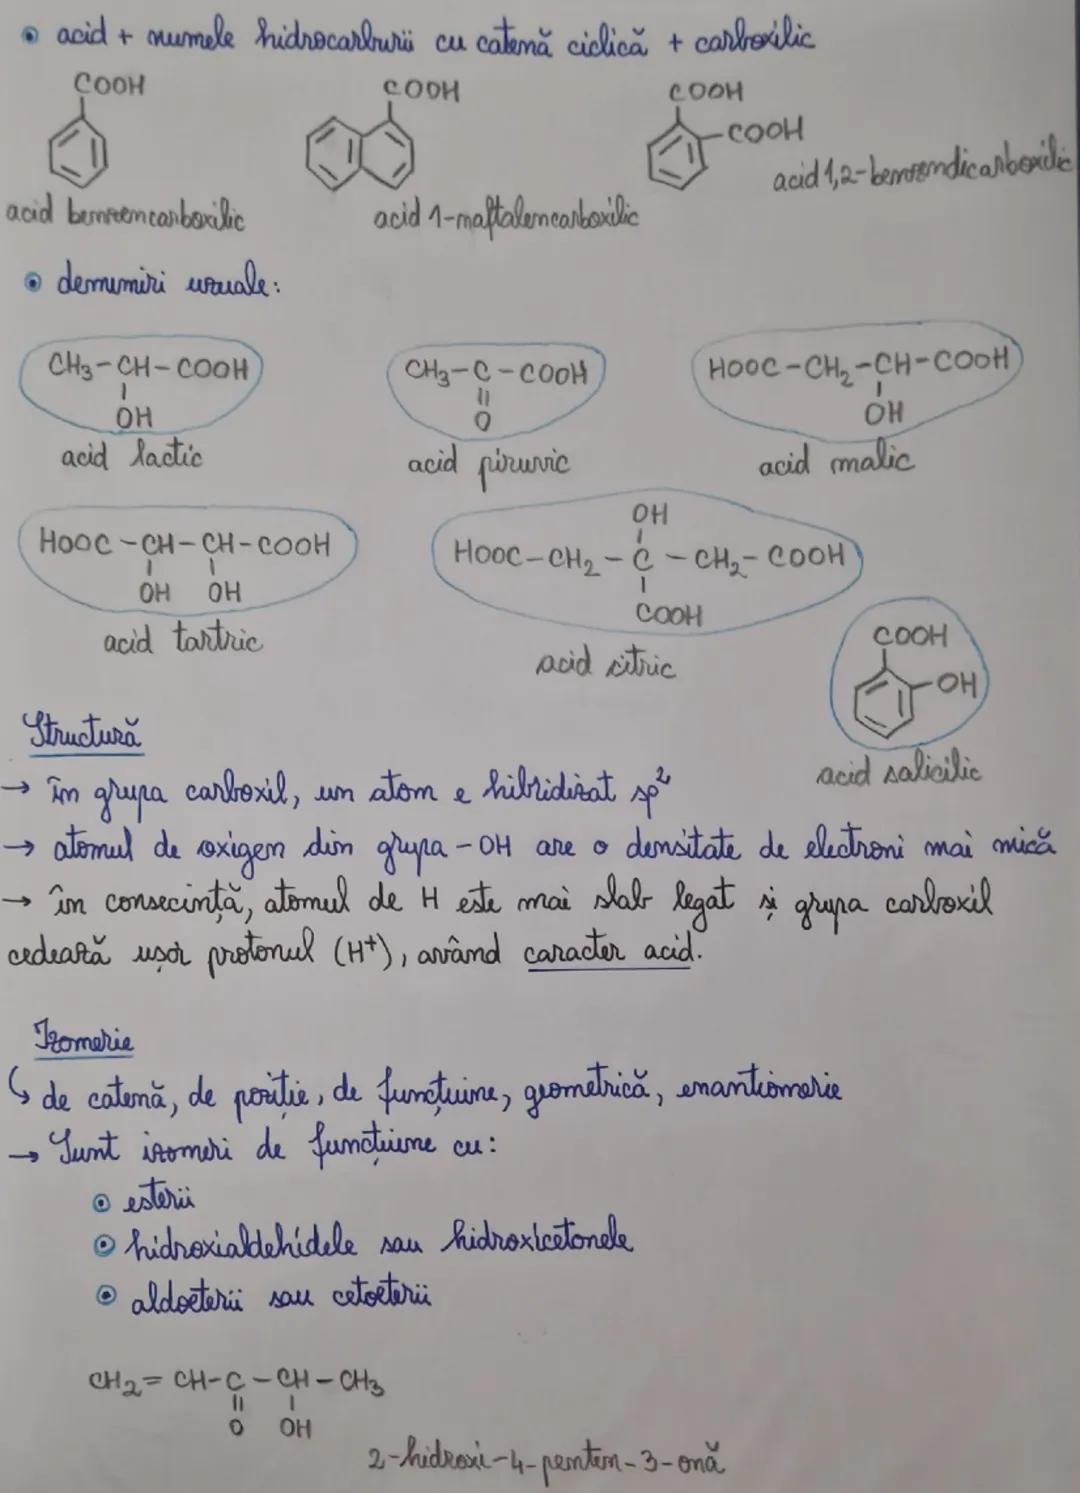 acid + numele hidrocarburii cu catenă ciclică + carboxilic
COOH COOH COOH
COOH
acid 1,2-benzendicarboxilic
acid benzencarboxilic acid 1-naftalencarboxilic
denumiri uzuale:
CH3-CH-COOH CH3-C-COOH HOOC-CH2-CH-COOH
OH O OH
acid lactic acid piruvic acid malic
OH
HOOC-CH-CH-COOH HOOC-CH2-C-CH2-COOH
OH OH COOH
acid tartric acid citric
COOH
OH
acid salicilic
Structură
→ în grupa carboxil, un atom e hibridizat sp²
→ atomul de oxigen din grupa -OH are o densitate de electroni mai mică
→ în consecință, atomul de H este mai slab legat și grupa carboxil
cedează ușor protonul (H+), având caracter acid.
Izomerie
↳ de catenă, de poziție, de funcțiune, geometrică, enantiomerie
→ Sunt izomeri de funcțiune cu:
esterii
hidroxialdehidele sau hidroxicetonele
aldoeterii sau cetoeterii
CH2=CH-C-CH-CH3
O OH
2-hidroxi-4-penten-3-onă